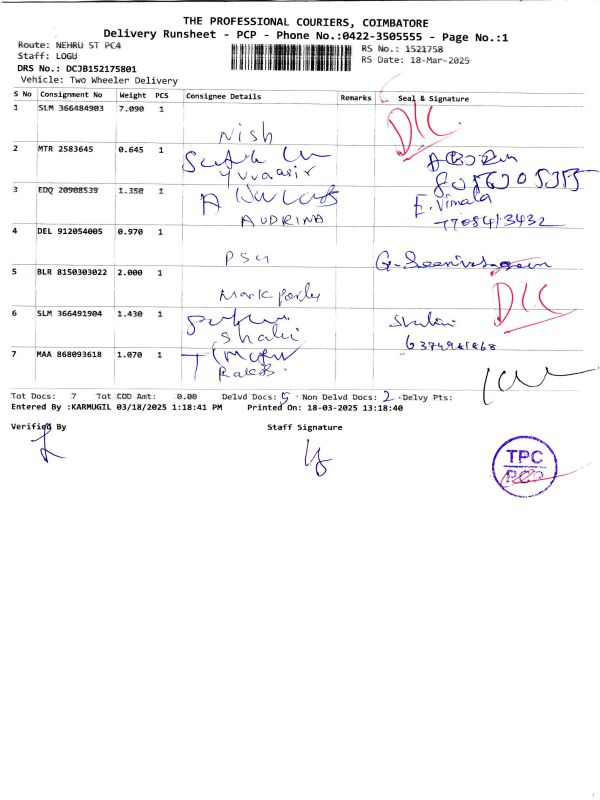 THE PROFESSIONAL COURIERS, COIMBATORE
Delivery Runsheet - PCP - Phone No.:0422-3505555 - Page No.:1
Route: NEHRU ST PC4
RS No.: 1521758
Staff: LOGU
RS Date: 18-Mar-2025
DRS No.: DCJB152175801
Vehicle: Two Wheeler Delivery
S No Consignment No Weight PCS Consignee Details Remarks Seal & Signature
1 SLM 366484903 7.090 1
DLC
Nish
2 MTR 2583645 0.645 1
Yuvaasir
3 EDQ 20908539 1.350 1
E. Vimala
AUDRINA 7708413432
4 DEL 912054005 0.970 1
PSG
5 BLR 8150303022 2.000 1
DLC
6 SLM 366491904 1.430 1
Shalini
7 MAA 868093618 1.070 1
Tot Docs: 7 Tot COD Amt: 0.00 Delvd Docs: 5 Non Delvd Docs: 2 Delvy Pts:
Entered By :KARMUGIL 03/18/2025 1:18:41 PM Printed On: 18-03-2025 13:18:40
Verified By Staff Signature
TPC
PCP